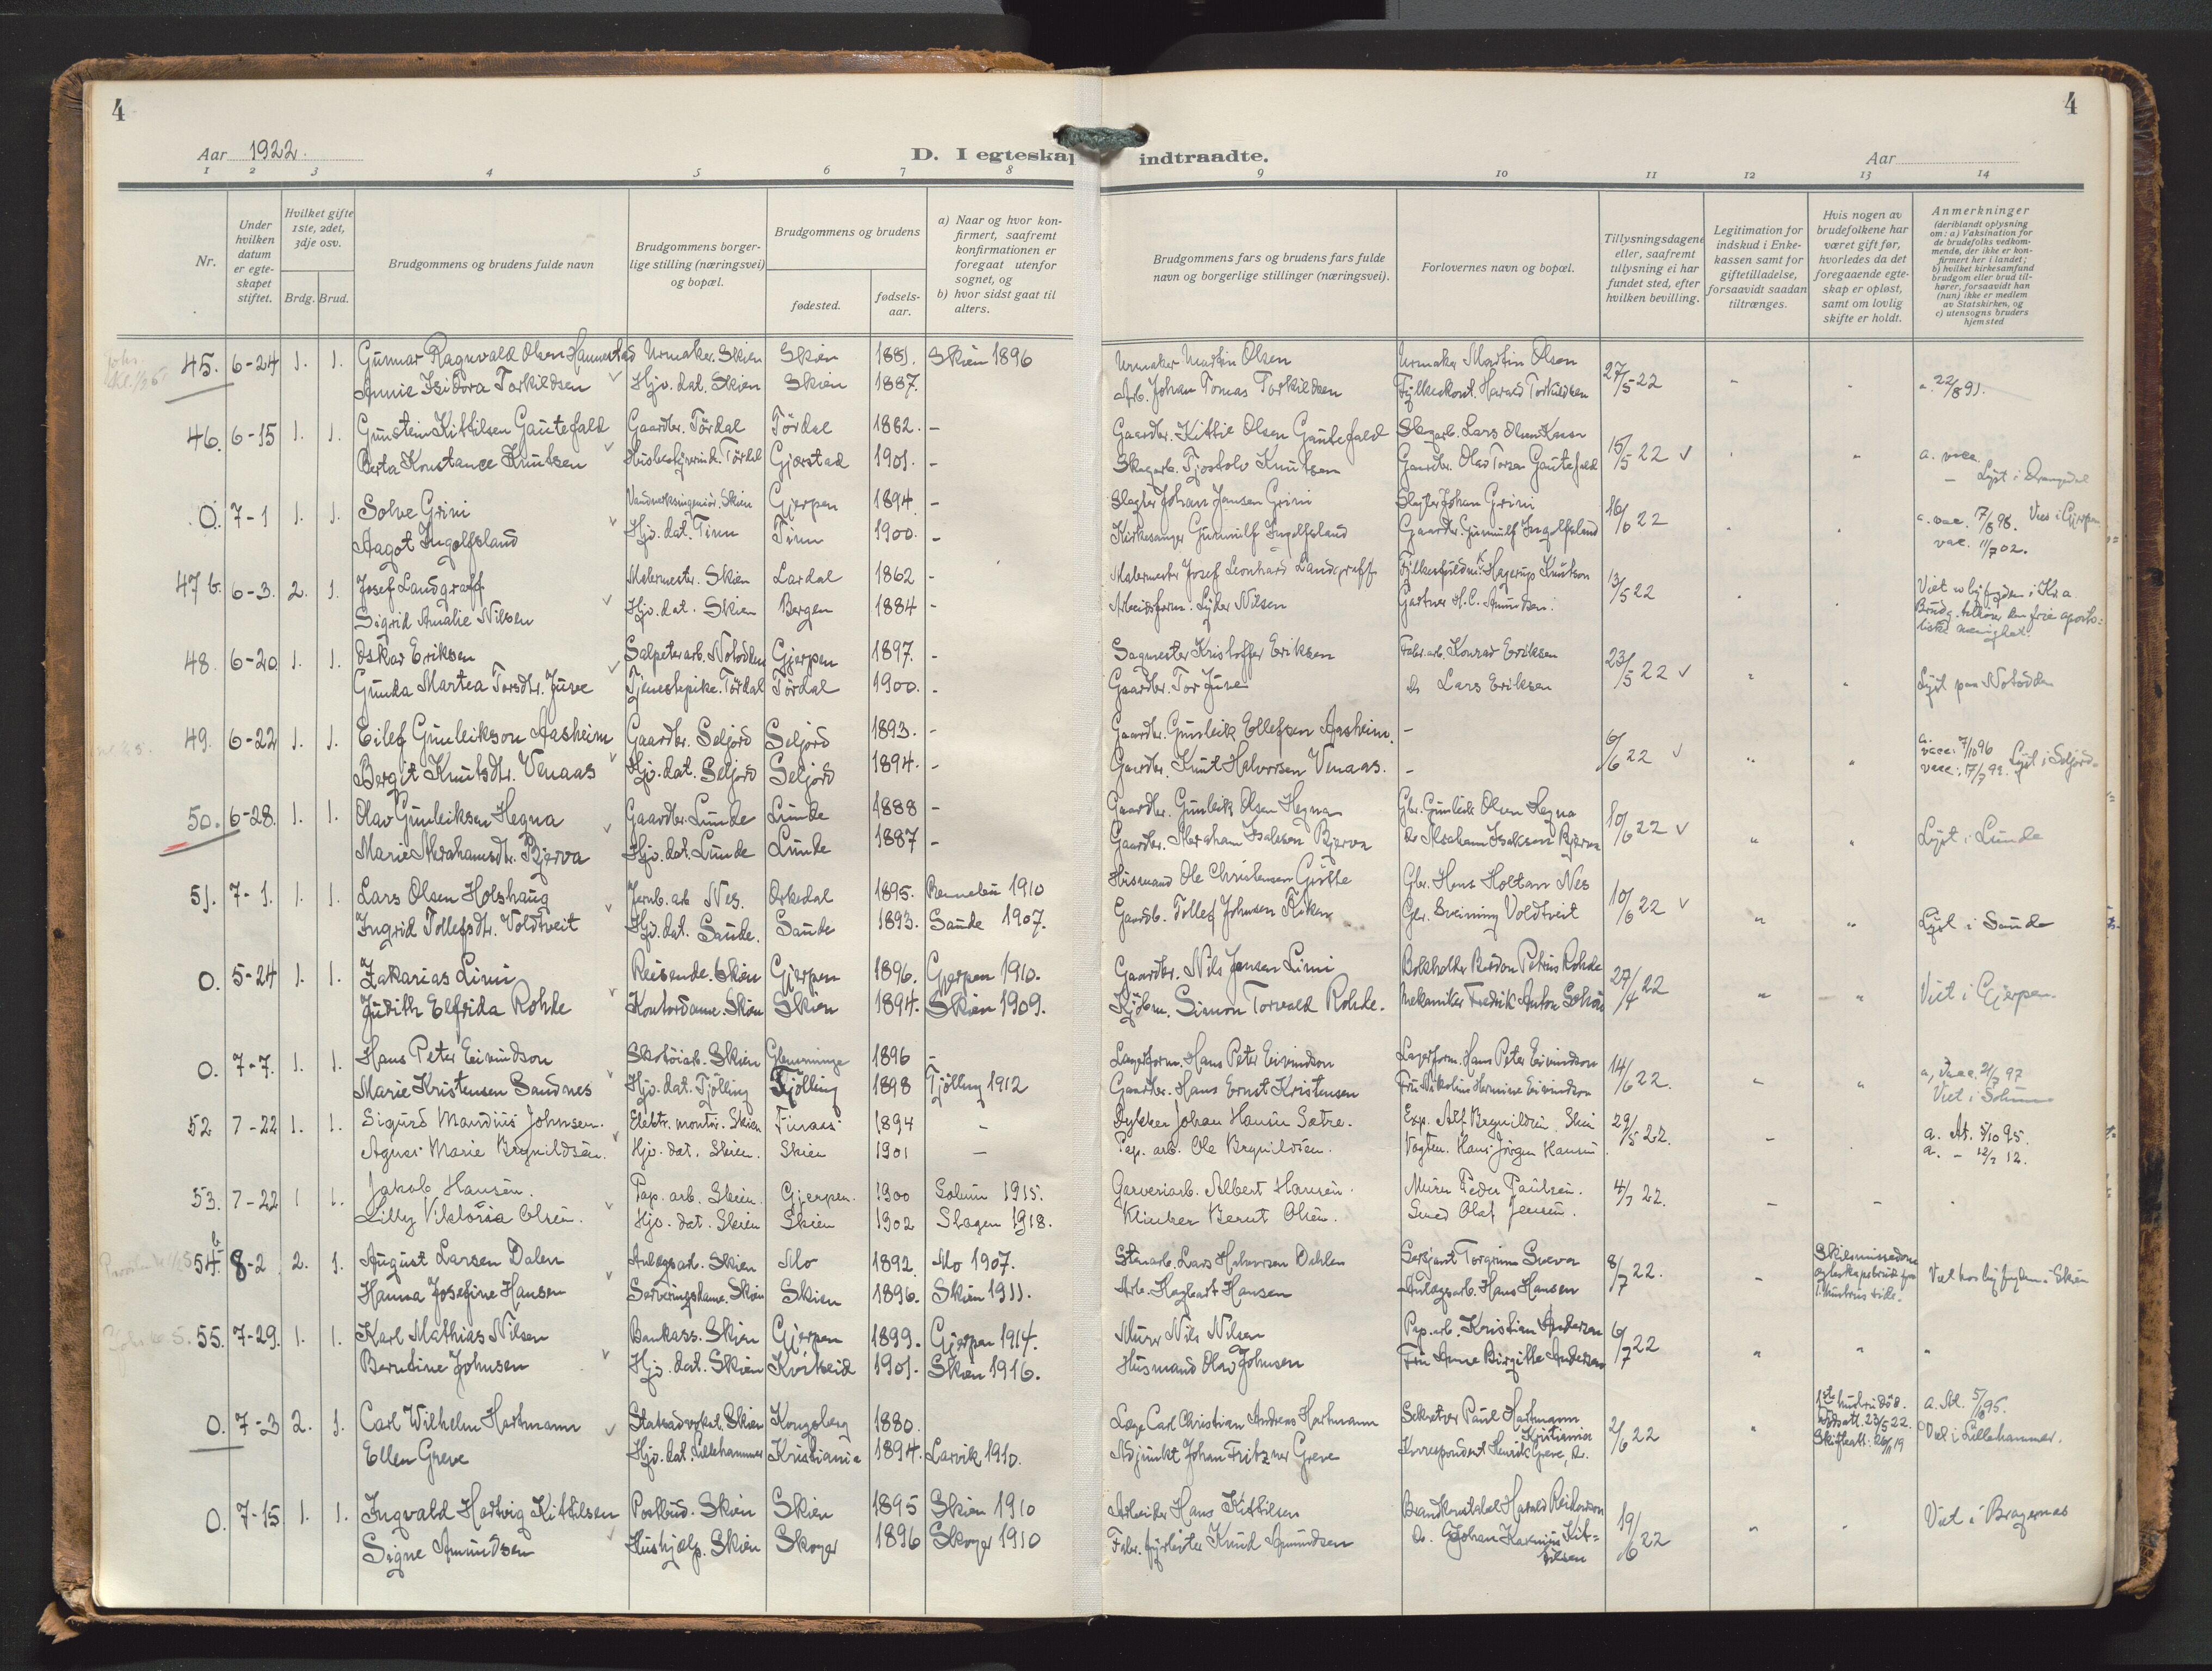 4
4
Aar 1922.
D. I egteskap indtraadte.
Aar
1 2 3 4 5 6 7 8 9 10 11 12 13 14
Nr.
Under hvilken datum er egteskapet stiftet.
Hvilket gifte 1ste, 2det, 3dje osv.
Brdg. Brud.
Brudgommens og brudens fulde navn
Brudgommens borgerlige stilling (næringsvei) og bopæl.
Brudgommens og brudens
fødested.
fødselsaar.
a) Naar og hvor konfirmert, saafremt konfirmationen er foregaat utenfor sognet, og
b) hvor sidst gaat til alters.
Brudgommens fars og brudens fars fulde navn og borgerlige stillinger (næringsvei).
Forlovernes navn og bopæl.
Tillysningsdagene eller, saafremt tillysning ei har fundet sted, efter hvilken bevilling.
Legitimation for indskud i Enkekassen samt for giftetilladelse, forsaavidt saadan tiltrænges.
Hvis nogen av brudefolkene har været gift før, hvorledes da det foregaaende egteskap er opløst, samt om lovlig skifte er holdt.
Anmerkninger (deriblandt oplysning om: a) Vaksination for de brudefolks vedkommende, der ikke er konfirmert her i landet; b) hvilket kirkesamfund brudgom eller brud tilhører, forsaavidt han (hun) ikke er medlem av Statskirken, og c) utensogns bruders hjemsted
45. 6-24 1. 1. Gunnar Ragnvald Olsen Hammerstad Urmaker. Skien Skien 1881. Skien 1896 Urmaker Martin Olsen Urmaker Martin Olsen 27/5 22
Annie Isidora Torkildsen Hjv. dat. Skien Skien 1887. Arb. Johan Tomas Torkildsen Fylkeskont. Harald Torkildsen a. 22/8 91.
46. 6-15 1. 1. Gunstein Kittilsen Gautefald Gaardbr. Tørdal Tørdal 1882. - Gaardbr. Kittil Olsen Gautefald Skogarb. Lars Olsen 15/5 22 a. vacc.
Berta Konstance Knutsen Tørdal Gjerstad 1901. - Skogarb. Tjostolv Knutsen Gaardbr. Olav Gautefald - Lyst i Drangedal
0. 7-1 1. 1. Solve Grini Vandverksingeniør. Skien Gjerpen 1894 - Slagter Johan Jansen Grini Slagter Johan Grini 16/6 22 a. vac. 17/8 98. Viet i Gjerpen
Aagot Ingolfsland Hjv. dat. Tinn Tinn 1900. - Kirkesanger Gunnulf Ingolfsland Gaardbr. Gunnulf Ingolfsland vac. 11/7 02.
47 b. 6-3. 2. 1. Josef Landgraff Malermester. Skien Lardal 1862 - Malermester Josef Leonhard Landgraff Hagerup Knutson 13/5 22 Viet v. byfogden i Kr.a
Sigrid Amalie Nilsen Hjv. dat. Skien Bergen 1884 - Arbeidsform. Lyder Nilsen Gartner H. C. Amundsen. Brudg. tilhører den frie apostoliske menighet.
48. 6-20 1. 1. Oskar Eriksen Salpeterarb. Notodden Gjerpen 1897. - Sagmester Kristoffer Eriksen Fabr. arb. Konrad Eriksen 23/5 22
Gunda Martea Torsdtr. Juve Tjenestepike. Tørdal Tørdal 1900. - Gaardbr. Tor Juve do Lars Eriksen Lyst paa Notodden
49. 6-22 1. 1. Eilef Gunleikson Aasheim Gaardbr. Seljord Seljord 1893. - Gaardbr. Gunleik Ellefsen Aasheim. - 6/6 22 a. vacc: 7/10 96
Bergit Knutsdtr. Venaas Hjv. dat. Seljord Seljord 1894. - Gaardbr. Knut Halvorsen Venaas. - vacc: 17/7 99. Lyst i Seljord
50. 6-28. 1. 1. Olav Gunleiksen Hegna Gaardbr. Lunde Lunde 1888 - Gaardbr. Gunleik Olsen Hegna Gbr. Gunleik Olsen Hegna 10/6 22
Marie Abrahamsdtr. Bjerva Hjv. dat. Lunde Lunde 1887 - Gaardbr. Abraham Isaksen Bjerva do Abraham Isaksen Bjerva Lyst i Lunde
51. 7-1. 1. 1. Lars Olsen Holshaug Jernb. arb Nes. Orkedal 1895. Rennebu 1910 Husmand Ole Christensen Gbr. Hans Holtan Nes 10/6 22
Ingrid Tollefsdtr. Voldtveit Hjv. dat. Saude. Saude 1893. Saude 1907. Gaardb. Tollef Johnsen Gbr. Sveinung Voldtveit Lyst i Saude
0. 5-24 1. 1. Zakarias Limi Reisende. Skien Gjerpen 1896. Gjerpen 1910. Gaardbr. Nils Jensen Limi Bokholder Petrus Rohde 27/4 22
Judith Elfrida Rohde Kontordame. Skien Skien 1894. Skien 1909. Kjøbm. Simon Torvald Rohde. Mekaniker Fredrik Anton Viet i Gjerpen.
0. 7-7. 1. 1. Hans Peter Eivindson Skotøiarb. Skien Glemminge 1896 - Lagerform. Hans Peter Eivindson Lagerform. Hans Peter Eivindson 14/6 22. a, vacc. 21/7 97
Marie Kristensen Sandnes Hjv. dat. Tjølling Tjølling 1898 Tjølling 1912 Gaardbr. Hans Ernst Kristensen Fru Nikoline Hermine Eivindson Viet i Solum
52 7-22 1. 1. Sigurd Mandius Johnsen. Elektr. montør. Skien 1894 - Dykker Johan Hansen Sætre. Exp. Alf Brynildsen. Skien 29/5 22. a. At. 5/10 95.
Agnes Marie Brynildsen. Hjv. dat. Skien. Skien 1901 - Pap. arb. Ole Brynildsen. Vogtm. Hans Jørgen Hansen a. - 12/2 12.
53. 7-22 1 1. Jakob Hansen. Pap. arb. Skien. Gjerpen. 1900 Solum 1915. Garveriarb. Albert Hansen. Murer Peder Paulsen. 4/7 22.
Lilly Viktoria Olsen. Hjv. dat. Skien Skien 1902 Slagen 1918. Klinker Bernt Olsen. Smed Olaf Jensen.
54. b 8-2 2. 1. August Larsen Dalen Anlegsarb. Skien Mo 1892. Mo 1907. Stenarb. Lars Halvorsen Dahlen Sersjant Torgrim 8/7 22.
Hanna Josefine Hansen Serveringsdame. Skien Skien 1896. Skien 1911. Arb. Hagbart Hansen Anlegsarb. Hans Hansen Viet hos byfogden i Skien
55. 7-29. 1. 1. Karl Mathias Nilsen Bankass. Skien Gjerpen 1899. Gjerpen 1914. Murer Nils Nilsen Pap. arb. Kristian Andersen 6/7 22
Berntine Johnsen Hjv. dat. Skien Kviteseid 1901. Skien 1916. Husmand Olav Johnsen Fru Anne Birgitte Andersen
0. 7-3 2. 1. Carl Wilhelm Hartmann Statsadvokat. Skien Kongsberg 1880. Læge Carl Christian Andreas Hartmann Sekretær Paul Hartmann Kristiania 2/6 22 1ste hustru død. a. At. 5/8 95.
Ellen Greve Hjv. dat. Lillehammer Kristiania 1894. Larvik 1910. Adjunkt Johan Fritzner Greve Korrespondent Henrik Greve, do. Skifteatt: 26/11 19 Viet i Lillehammer.
0. 7-15 1. 1. Ingvald Hartvig Kittilsen Postbud. Skien Skien 1895 Skien 1910 Arbeider Hans Kittilsen Brandkonstabel Harald 19/6 22
Signe Amundsen Hushjælp. Skien Skoger 1896 Skoger 1910 Fabr. fyrbøter Knud Amundsen do. Johan Kittilsen Viet i Bragernes